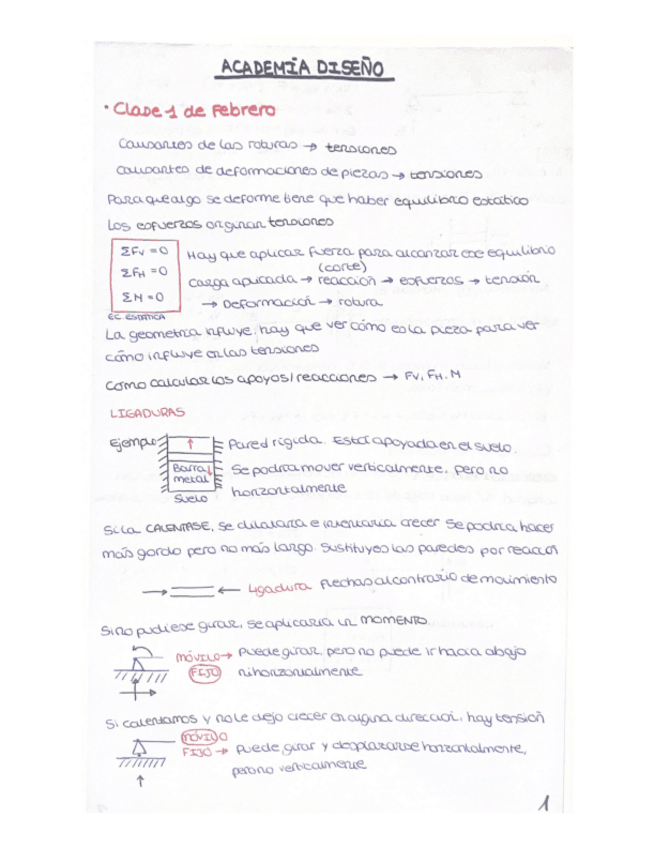 ACADEMIA DISEÑO
• Clase 1 de Febrero
Causantes de las roturas → tensiones
Causantes de deformaciones de piezas → tensiones
Para que algo se deforme tiene que haber equilibrio estático
Los esfuerzos originan tensiones
ΣFv = 0
ΣFH = 0
ΣM = 0
EC. ESTÁTICA
Hay que aplicar fuerza para alcanzar ese equilibrio
(corte)
Carga aplicada → reacción → esfuerzos → tensión
→ Deformación → rotura
La geometría influye, hay que ver cómo es la pieza para ver
cómo influye en las tensiones
Como calcular los apoyos/reacciones → Fv, FH, M
LIGADURAS
Ejemplo
Barra
metal
Suelo
Pared rígida. Está apoyada en el suelo.
Se podría mover verticalmente, pero no
horizontalmente
Si la CALENTASE, se dilataría e intentaría crecer. Se podría hacer
más gordo pero no más largo. Sustituyes las paredes por reacción
→ ← Ligadura Flechas al contrario de movimiento
Si no pudiese girar, se aplicaría un MOMENTO
MÓVIL → Puede girar, pero no puede ir hacia abajo
FIJO ni horizontalmente
Si calentamos y no le dejo crecer en alguna dirección, hay tensión
MÓVIL
FIJO → Puede girar y desplazarse horizontalmente,
pero no verticalmente
1